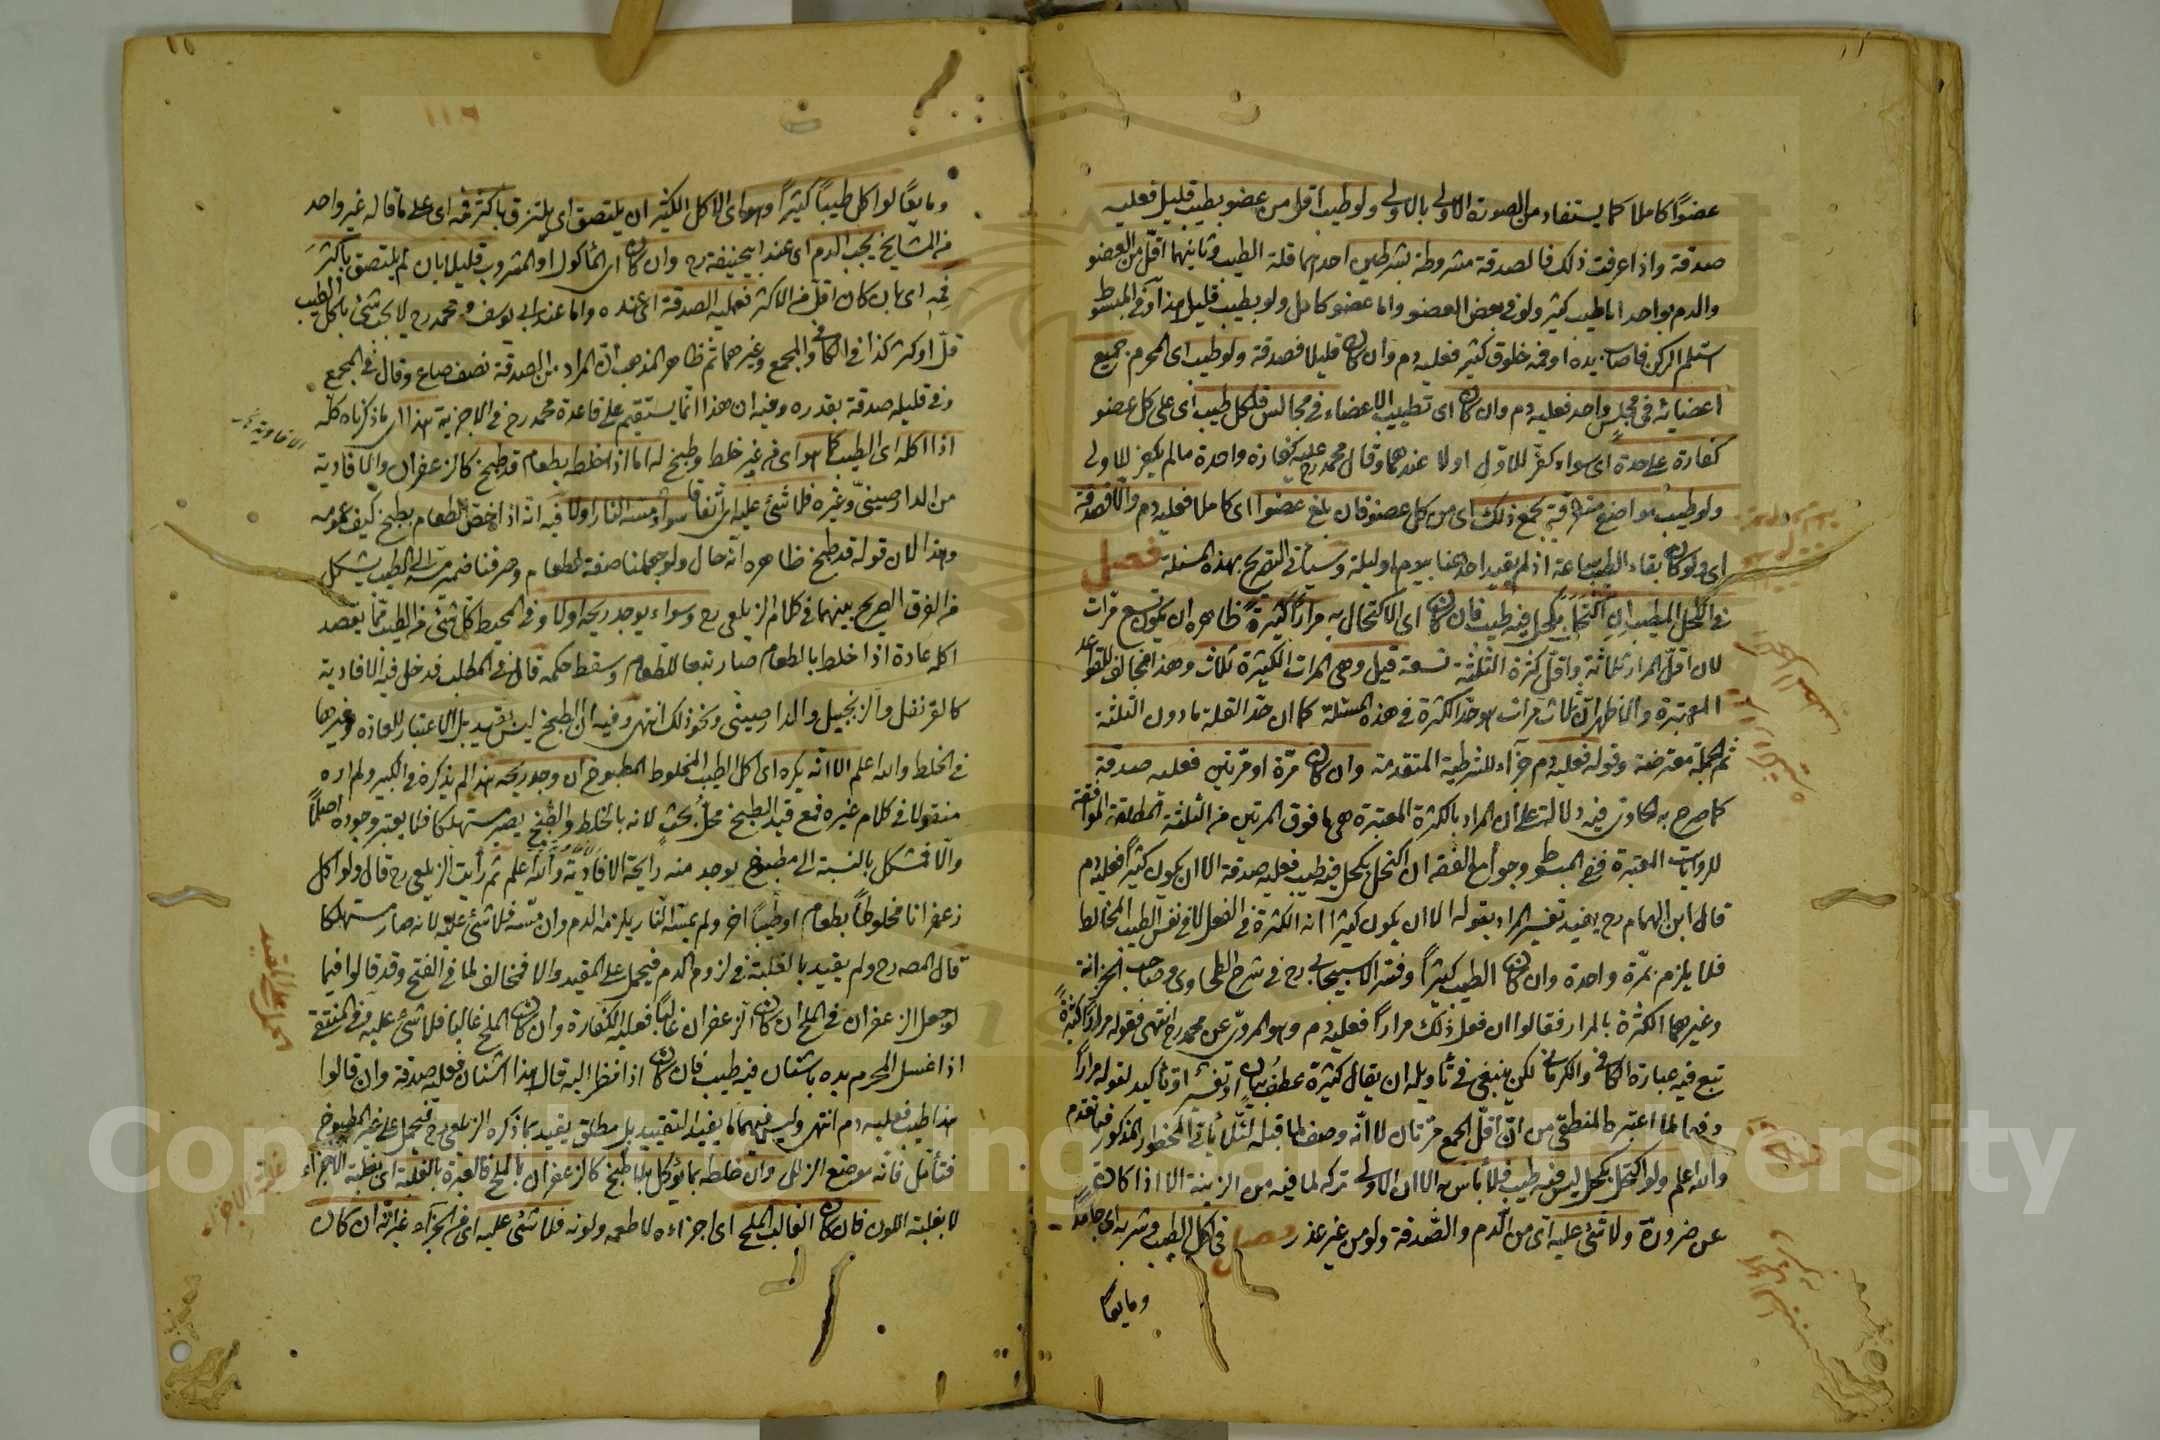 عضوًا كاملا كما يستفاد من الصورة الاولى بالاولى ولو طيب اقل من عضو بطيب قليل فعليه
صدقة واذا عرفت ذلك فالصدقة مشروطة بشرطين احدهما قلة الطيب وثانيهما اقل من العضو
والدم بواحد اما طيب كثير ولو في بعض العضو واما عضو كامل ولو بطيب قليل هذا وفي المبسوط
استلم الركن فاصاب يده او فمه خلوق كثير فعليه دم وان كان قليلا فصدقة ولو طيب اى المحرم جميع
اعضائه في مجلس واحد فعليه دم وان كان اى تطييب الاعضاء في مجالس فلكل طيب اى على كل عضو
كفارة على حدة اى سواء كفر للاول اولا عندهما وقال محمد رح عليه كفارة واحدة ما لم يكفر للاولى
ولو طيب مواضع متفرقة يجمع ذلك اى من كل عضو فان بلغ عضوا اى كاملا فعليه دم والا فصدقة
اى ولو كان بقاء الطيب ساعة اذ لم يقيد احد هنا بيوم او ليلة وسيأتي التصريح بهذه المسئلة فصل
في الكحل المطيب ان اكتحل بكحل فيه طيب فان كان اى الاكتحال به مرارا كثيرة ظاهره ان يكون تسع مرات
لان اقل المرار ثلاثة واقل كثرة الثلثة تسعة قيل وهي المرات الكثيرة ثلاث وهذا مخالف للقواعد
المعتبرة والاظهر ان ثلاث مرات هو حد الكثرة في هذه المسئلة كما ان حد القلة مادون الثلثة
ثم الجملة معترضة وقوله فعليه دم جزاء للشرطية المتقدمة وان كان مرة او مرتين فعليه صدقة
كما صرح به الحاوى فيه دلالة على ان المراد بالكثرة المعتبرة هي ما فوق المرتين من الثلثة المطلقة الموافقة
للروايات المعتبرة ففي المبسوط وجوامع الفقه ان اكتحل بكحل فيه طيب فعليه صدقة الا ان يكون كثيرًا فعليه دم
قال ابن الهمام رح يفيد تفسير المراد بقوله الا ان يكون كثيرا انه الكثرة في الفعل لا في نفس الطيب المخالط
فلا يلزم بمرة واحدة وان كان الطيب كثيرًا وفسر الاسبيجابي رح في شرح الطحاوى وصاحب الخزانة
وغيرهما الكثرة بالمرار فقالوا ان فعل ذلك مرارًا فعليه دم وهو المروى عن محمد رح انتهى فقوله مرارا كثيرة
تبع فيه عبارة الكافي والكرماني لكن ينبغي في تأويله ان يقال كثيرة عطف بيان او تفسير او تأكيد لقوله مرارًا
دفعا لما اعتبره المنطقي من ان اقل الجمع مرتان لا انه وصف لما قبله لئلا يأتي المحظور المذكور فيما تقدم
والله اعلم ولو اكتحل بكحل ليس فيه طيب فلا بأس به الا ان الاولى تركه لما فيه من الزينة الا اذا كان
عن ضرورة ولا شئ عليه اى من الدم والصدقة ولو من غير عذر فصل في اكل الطيب وشربه اى جامدًا
ومايعًا
ومايعًا لو اكل طيبًا كثيرًا وهو اى الاكل الكثير ان يلتصق اى يلتزق باكثر فمه اى على ما قاله غير واحد
من المشايخ يجب الدم اى عند ابي حنيفة رح وان كان اى المأكول او المشروب قليلا بان لم يلتصق باكثر
فمه اى بان كان اقل من الاكثر فعليه الصدقة اى عنده واما عند ابى يوسف ومحمد رح لا يجب شئ باكل الطيب
قل او كثر كذا في الكافي والمجمع وغيرهما ثم ظاهر المذهب ان المراد من الصدقة نصف صاع وقال في المجمع
وفي قليله صدقة بقدره وفيه ان هذا انما يستقيم على قاعدة محمد رح في الاجزية هذا اى ما ذكرناه كله
اذا اكله اى الطيب كما هو اى من غير خلط وطبخ له اما اذا خلطه بطعام قد طبخ كالزعفران والافاوية
من الدارصيني وغيره فلا شئ عليه اى اتفاقا سواء مسته النار اولا فيه انه اذا خص الطعام بطبخ كيف عمومه
وهذا لان قوله قد طبخ ظاهره انه حال ولو جعلناه صفة للطعام وصرفنا ضمير مسته الى الطيب يشكل
من الفرق الصريح بينهما في كلام الزيلعي رح وسواء يوجد ريحه اولا وفي المحيط كل شئ من الطيب مما يقصد
اكله عادة اذا خلط بالطعام صار تبعا للطعام وسقط حكمه قال في المطلب فدخل فيه الافاوية
كالقرنفل والزنجبيل والدارصيني ونحو ذلك انتهى وفيه ان الطبخ ليس بقيد بل الاعتبار للعادة وغيرها
في الخلط والله اعلم الا انه يكره اى اكل الطيب المخلوط المطبوخ ان وجد ريحه هذا لم يذكره في الكبير ولم اره
منقولا في كلام غيره فمع قيد الطبخ محل بحث لانه بالخلط والطبخ يصير مستهلكا فلا يعتبر وجوده اصلًا
والا فمشكل بالنسبة الى مطبوخ يوجد منه رايحة الافاوية والله اعلم ثم رأيت الزيلعي رح قال ولو اكل
زعفرانا مخلوطًا بطعام او طيبًا آخر ولم يمسه النار يلزمه الدم وان مسته فلا شئ عليه لانه صار مستهلكا
قال المص رح ولم يقيد بالغلبة في لزوم الدم فيحمل على المقيد والا فمخالف لما في الفتح وقد قالوا فيما
لو جعل الزعفران في الملح ان كان الزعفران غالبًا فعليه الكفارة وان كان الملح غالبا فلا شئ عليه وفي المنتقى
اذا غسل المحرم يده باشنان فيه طيب فان كان اذا نظر اليه قال هذا اشنان فعليه صدقة وان قالوا
هذا طيب فعليه دم انتهى وليس فيهما ما يفيد التقييد بل مطلق يقيد بما ذكره الزيلعي رح فيحمل على غير المطبوخ
فتأمل فانه موضع الزلل وان خلطه بما يؤكل بلا طبخ كالزعفران بالملح فالعبرة بالغلبة اى بغلبة الاجزاء
لا بغلبة اللون فان كان الغالب الملح اى اجزاءه لا طعمه ولونه فلا شئ عليه اى من الجزاء غير انه ان كان
١١٦
غلبة الاجزاء